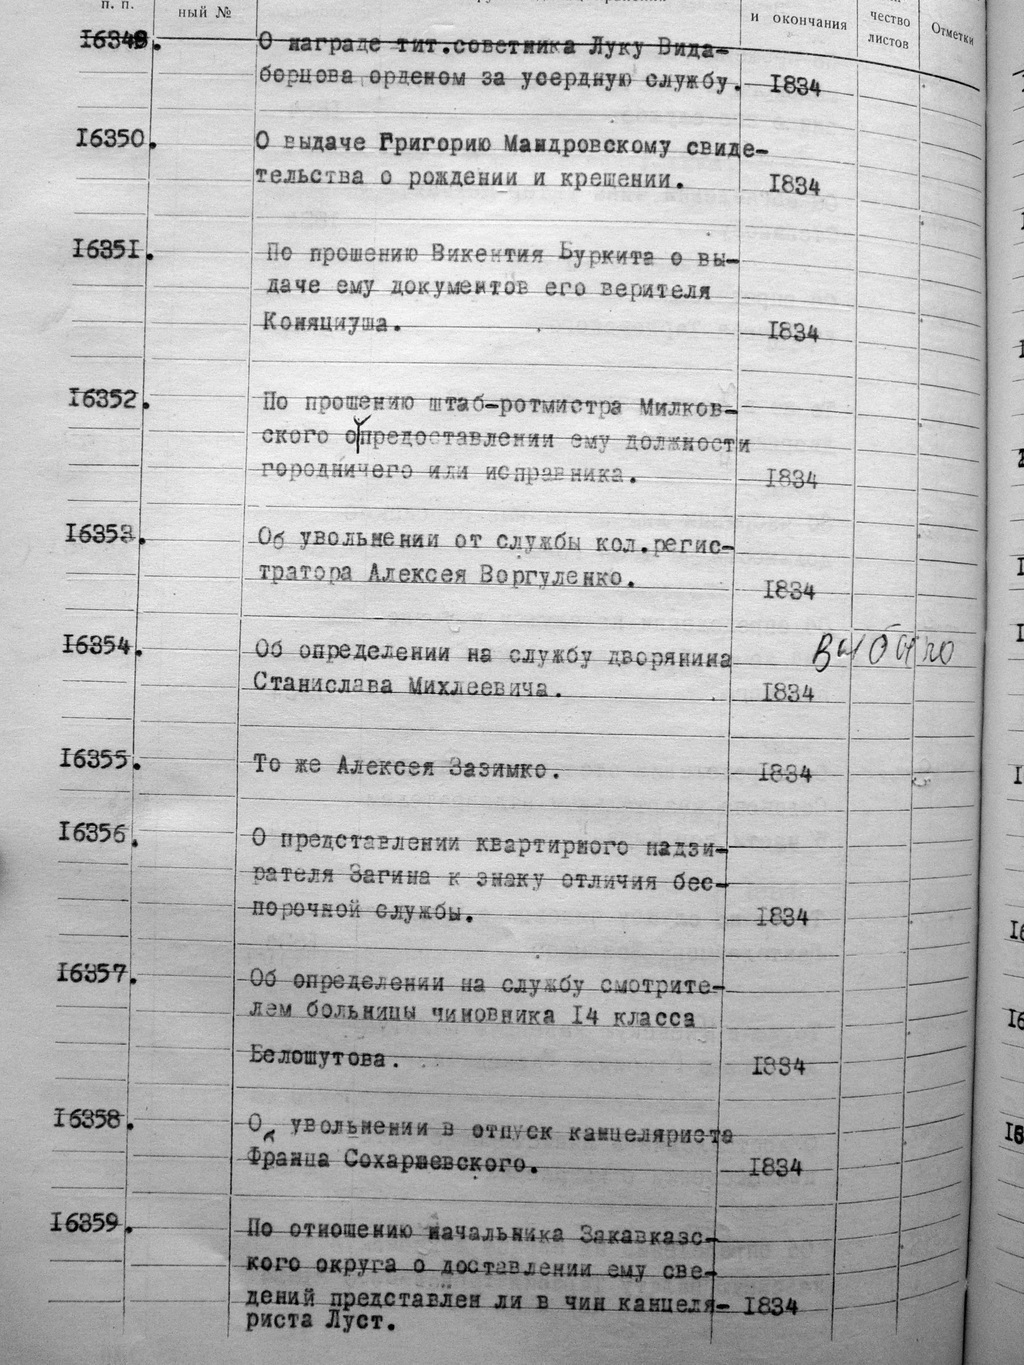 п. п.
ный №
и окончания
чество
листов
Отметки
16349.
О награде тит.советника Луку Вида-
борцова орденом за усердную службу. 1834
16350. О выдаче Григорию Мандровскому свиде-
тельства о рождении и крещении. 1834
16351. По прошению Викентия Буркита о вы-
даче ему документов его верителя
Коняциуша. 1834
16352. По прошению штаб-ротмистра Милков-
ского о предоставлении ему должности
городничего или исправника. 1834
16353. Об увольнении от службы кол.регис-
тратора Алексея Воргуленко. 1834
16354. Об определении на службу дворянина Выбыло
Станислава Михлеевича. 1834
16355. То же Алексея Зазимко. 1834
16356. О представлении квартирного надзи-
рателя Загина к знаку отличия бес-
порочной службы. 1834
16357. Об определении на службу смотрите-
лем больницы чиновника I4 класса
Белошутова. 1834
16358. О увольнении в отпуск канцеляриста
Франца Сохаржевского. 1834
16359. По отношению начальника Закавказс-
кого округа о доставлении ему све-
дений представлен ли в чин канцеля- 1834
риста Луст.